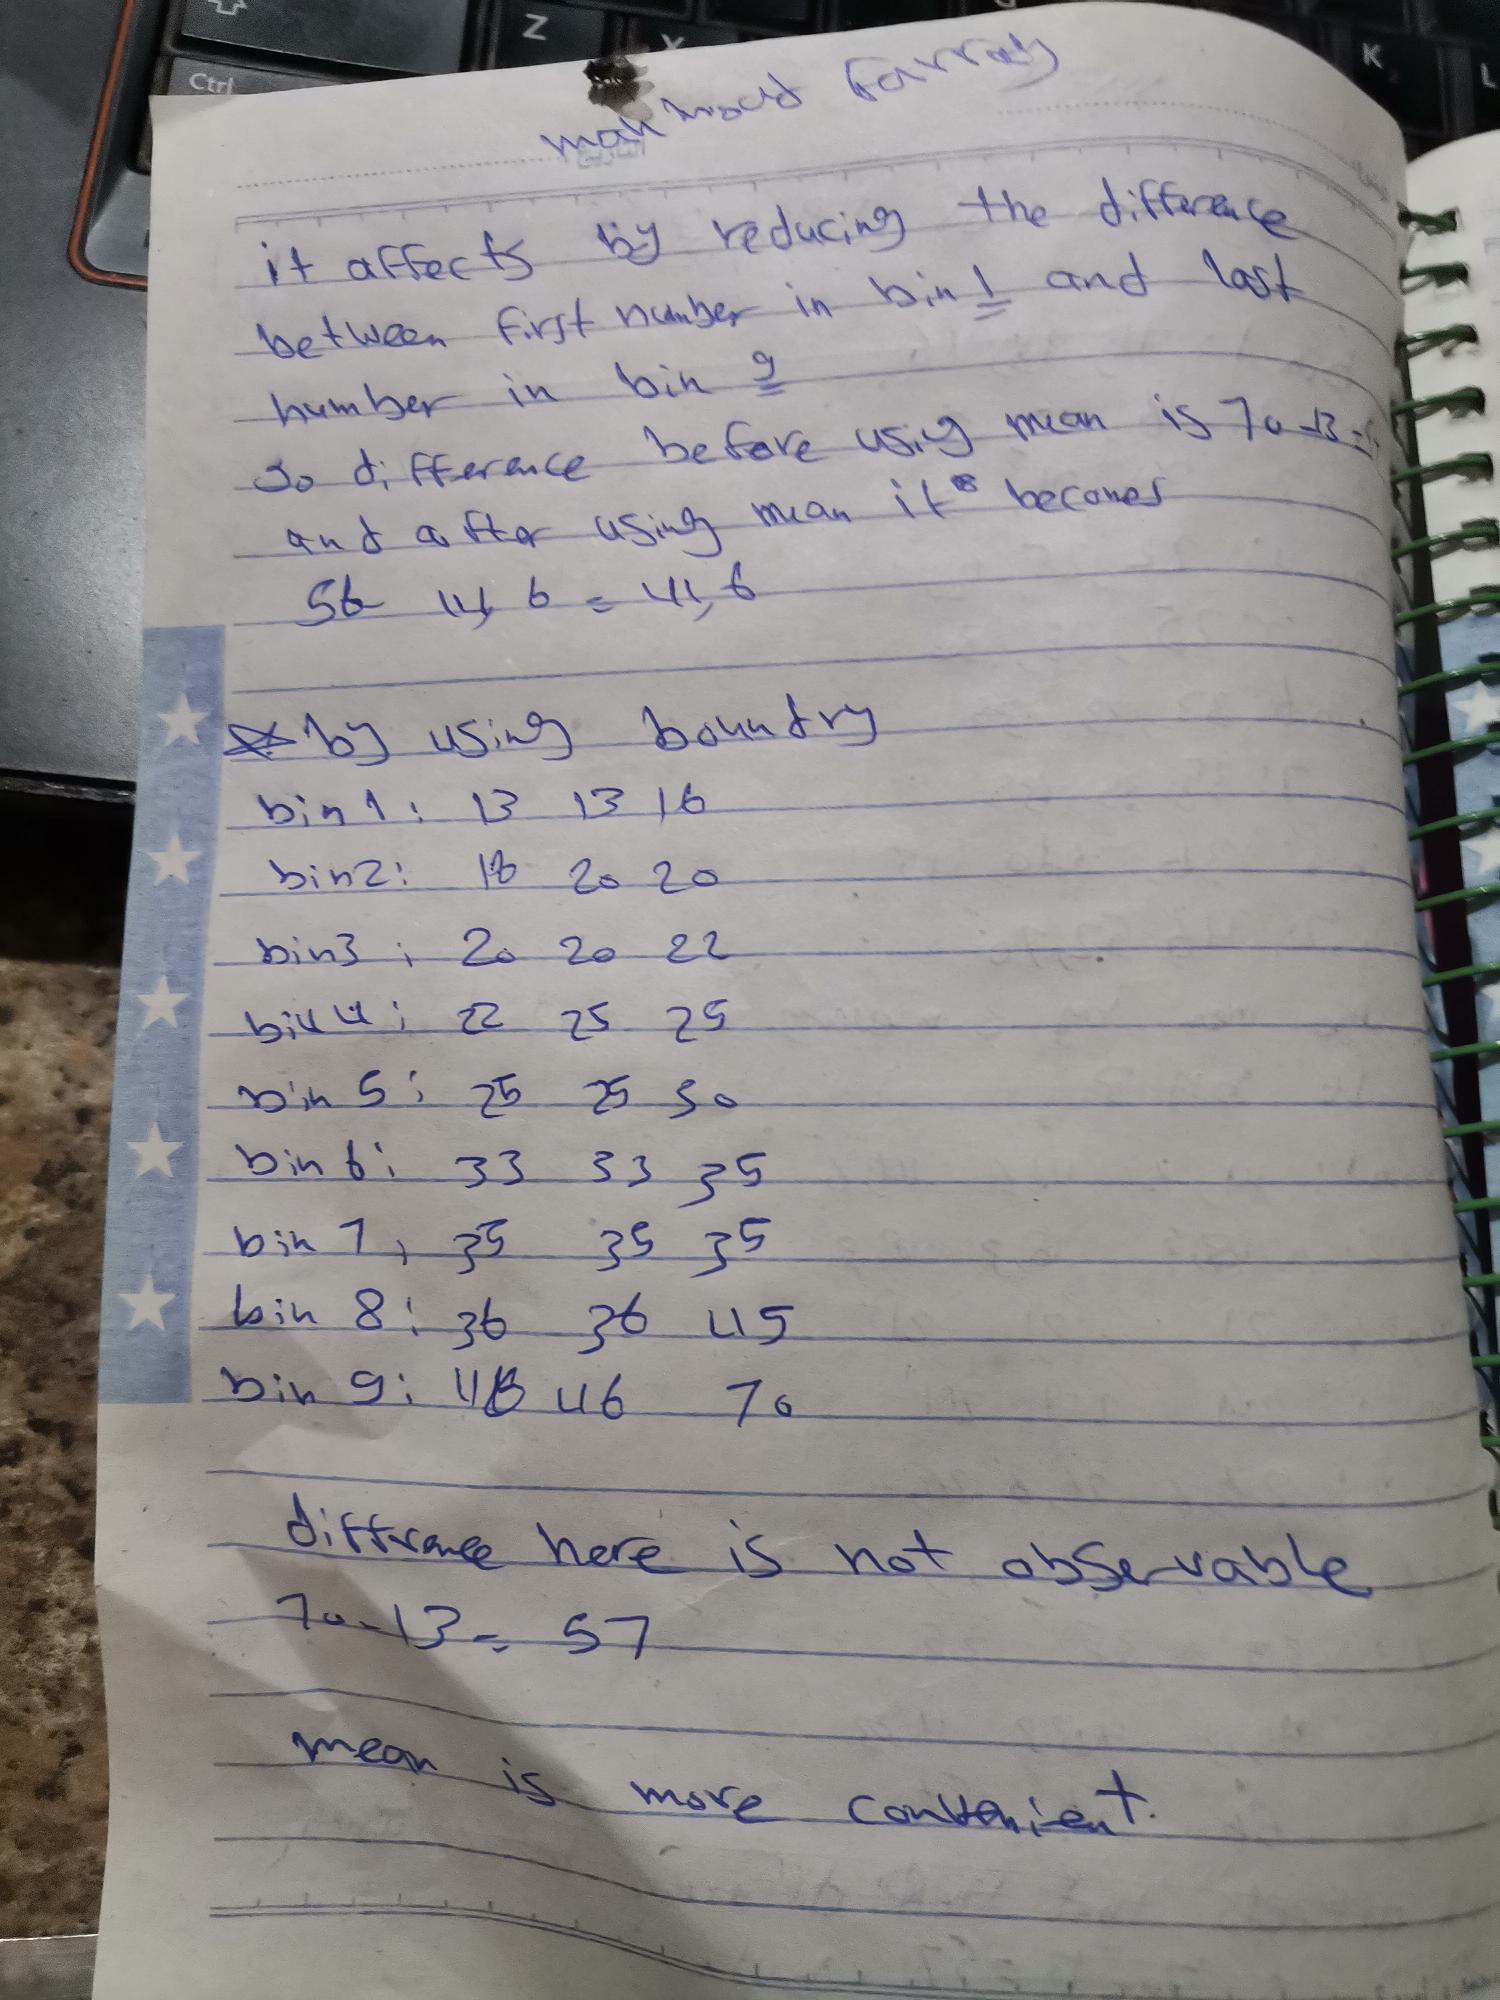 Z
X
K
L
Ctrl
mahmoud Farrag
التاريخ
it affects by reducing the difference
between first number in bin 1 and last
number in bin 9
so difference before using mean is 70-13=
and after using mean it becomes
56 14,6 = 41,6
by using boundry
bin1: 13 13 16
bin2: 18 20 20
bin3: 20 20 22
bin4: 22 25 25
bin 5: 25 25 30
bin 6: 33 33 35
bin 7: 35 35 35
bin 8: 36 36 45
bin 9: 46 46 70
difference here is not observable
70-13= 57
mean is more convenient.